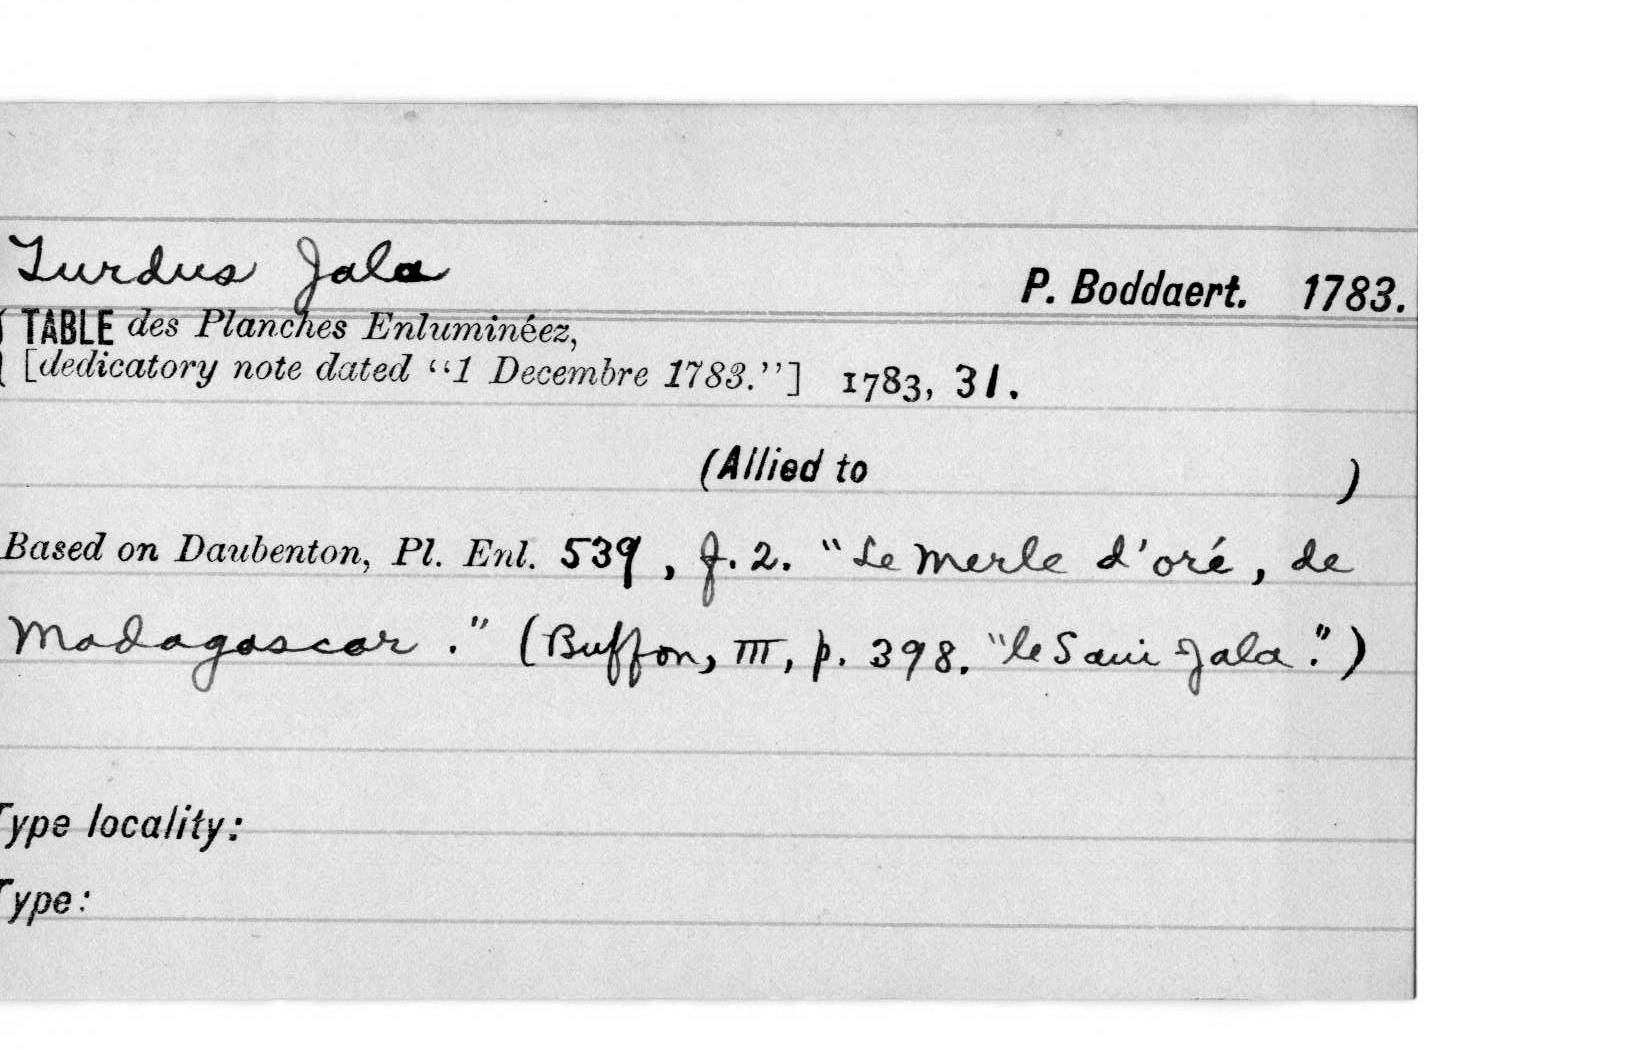 Turdus Jala
P. Boddaert. 1783.
TABLE des Planches Enluminéez,
[dedicatory note dated “1 Decembre 1783.”] 1783, 31.
(Allied to )
Based on Daubenton, Pl. Enl. 539, f. 2. "Le Merle d'oré, de
Madagascar." (Buffon, III, p. 398. "le Saui Jala".)
Type locality:
Type: